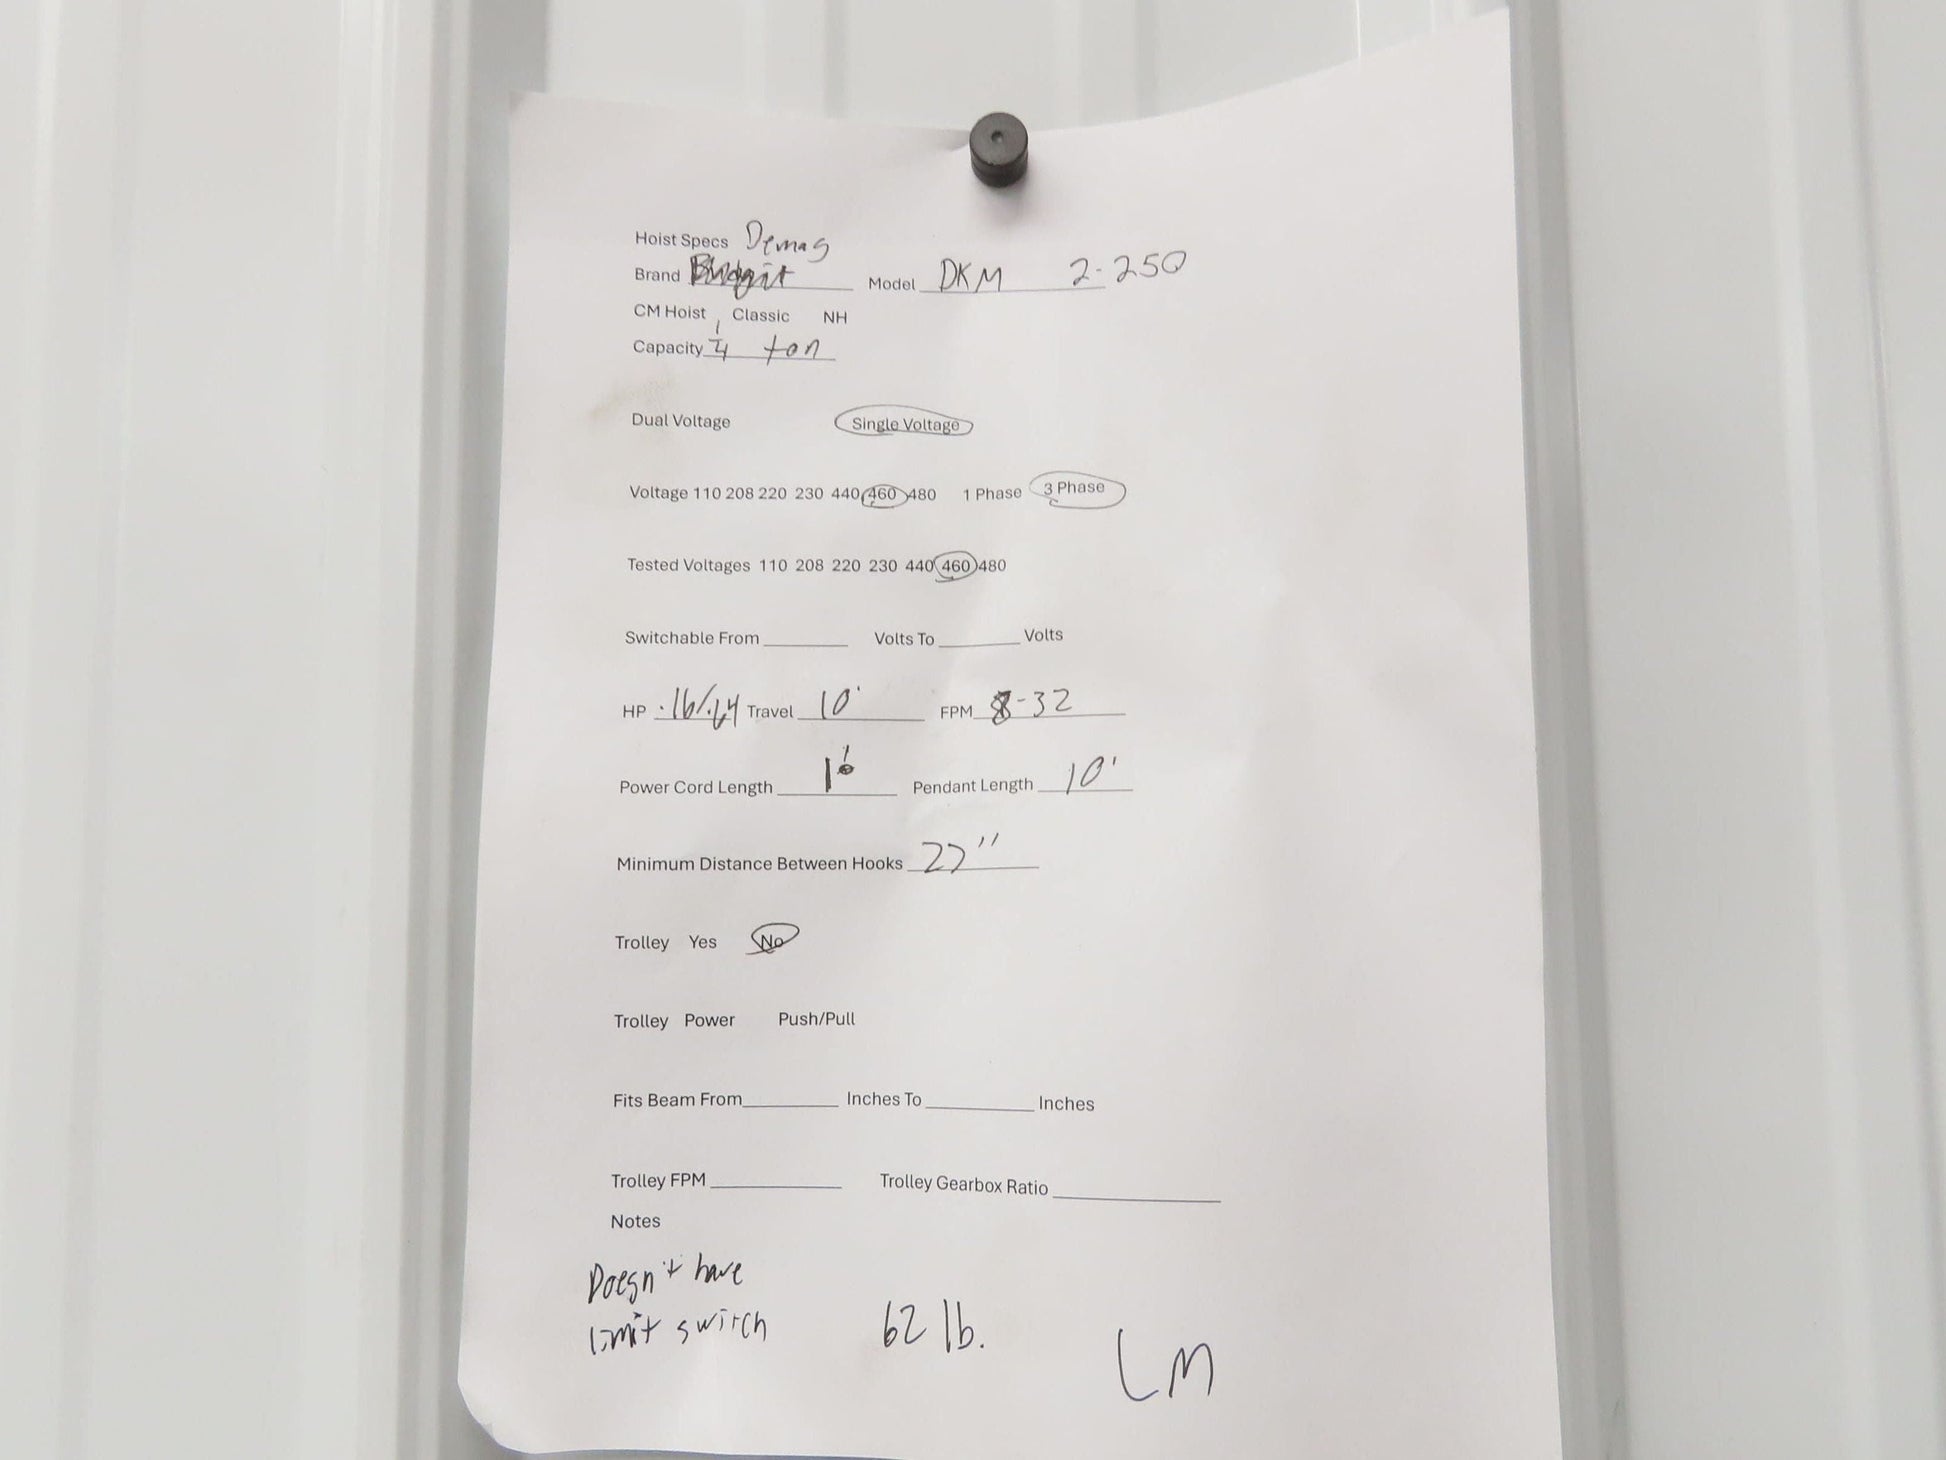 Hoist Specs Demag
Brand Budgit Model DKM 2-250
CM Hoist Classic NH
Capacity 1/4 ton
Dual Voltage Single Voltage
Voltage 110 208 220 230 440 460 480 1 Phase 3 Phase
Tested Voltages 110 208 220 230 440 460 480
Switchable From ______ Volts To ______ Volts
HP .16/.64 Travel 10' FPM 8-32
Power Cord Length 1' Pendant Length 10'
Minimum Distance Between Hooks 27"
Trolley Yes No
Trolley Power Push/Pull
Fits Beam From ______ Inches To ______ Inches
Trolley FPM ______ Trolley Gearbox Ratio ______
Notes
Doesn't have
limit switch 62 lb. LM